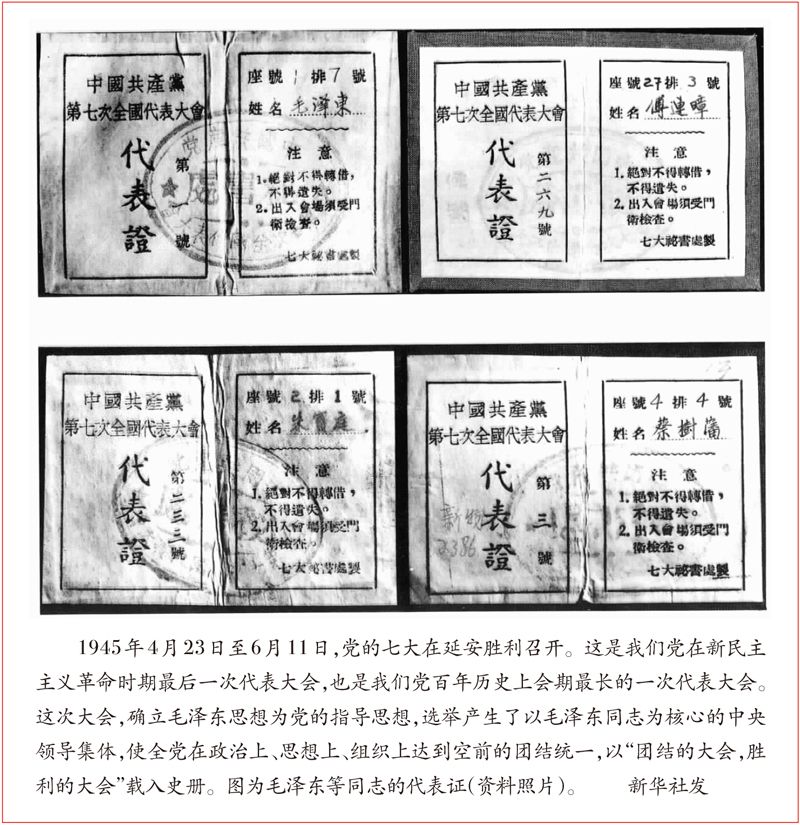 中國共產黨
第七次全國代表大會
代表證
第一號
座號1排7號
姓名 毛澤東
注意
1.絕對不得轉借，
不得遺失。
2.出入會場須受門
衛檢查。
七大祕書處製
中國共產黨
第七次全國代表大會
代表證
第二六九號
座號27排3號
姓名 傅連暲
注意
1.絕對不得轉借，
不得遺失。
2.出入會場須受門
衛檢查。
七大祕書處製
中國共產黨
第七次全國代表大會
代表證
第二三三號
座號2排1號
姓名 朱寶庭
注意
1.絕對不得轉借，
不得遺失。
2.出入會場須受門
衛檢查。
七大祕書處製
中國共產黨
第七次全國代表大會
代表證
第三號
3386
座號4排4號
姓名 蔡樹藩
注意
1.絕對不得轉借，
不得遺失。
2.出入會場須受門
衛檢查。
七大祕書處製
1945年4月23日至6月11日，党的七大在延安胜利召开。这是我们党在新民主
主义革命时期最后一次代表大会，也是我们党百年历史上会期最长的一次代表大会。
这次大会，确立毛泽东思想为党的指导思想，选举产生了以毛泽东同志为核心的中央
领导集体，使全党在政治上、思想上、组织上达到空前的团结统一，以“团结的大会，胜
利的大会”载入史册。图为毛泽东等同志的代表证（资料照片）。 新华社发